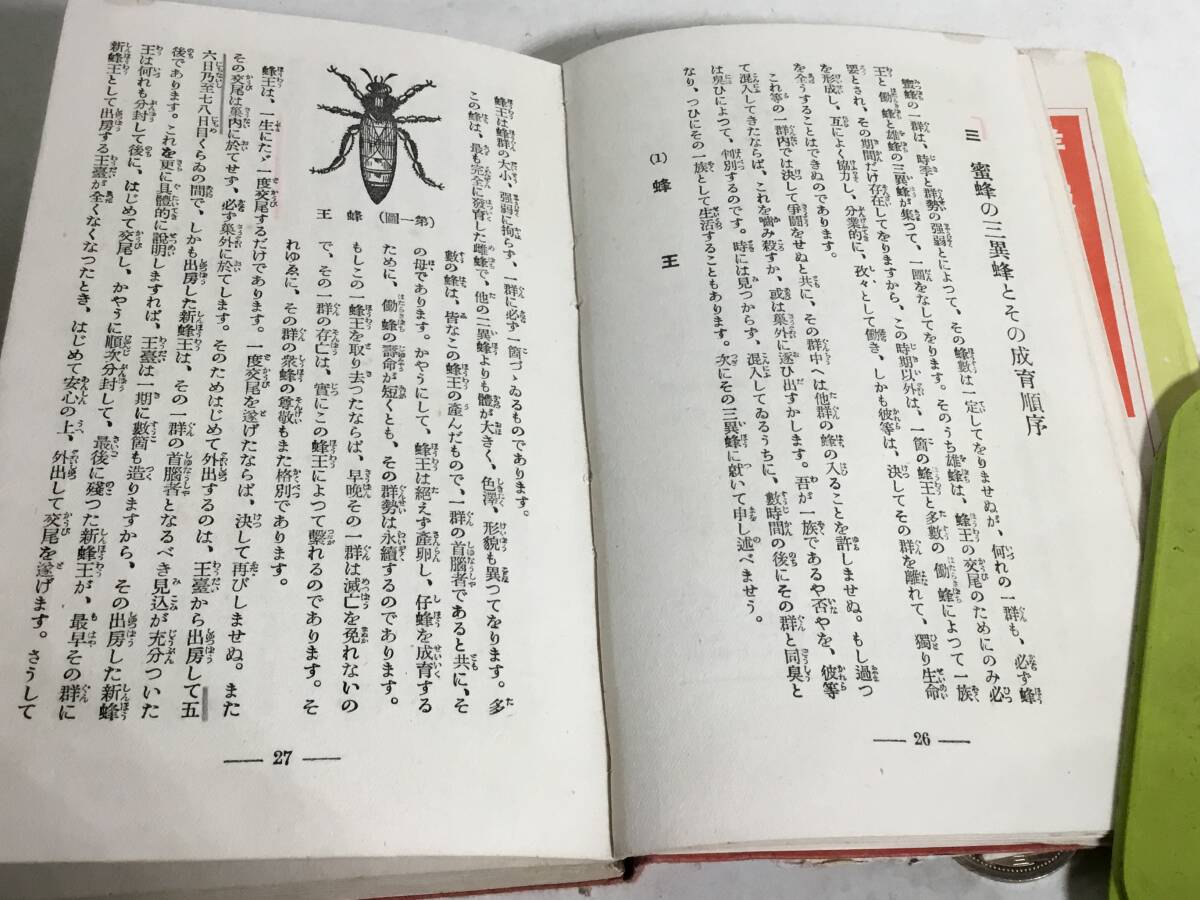 三 蜜蜂の三異蜂とその成育順序
蜜蜂の一群は、時季と群勢の強弱とによつて、その蜂數は一定してをりませぬが、何れの一群も、必ず蜂
王と働蜂と雄蜂の三異蜂が集つて、一團をなしてをります。そのうち雄蜂は、蜂王の交尾のためにのみ必
要とされ、その期間だけ存在してをりますから、この時期以外は、一箇の蜂王と多數の働蜂によつて一族
を形成し、互によく協力し、分業的に、孜々として働き、しかも彼等は、決してその群を離れて、獨り生命
を全うすることはできぬのであります。
これ等の一群内では決して爭鬪をせぬと共に、その群中へは他群の蜂の入ることを許しませぬ。もし過つ
て混入してきたならば、これを嚙み殺すか、或は巢外に逐ひ出すかします。吾が一族であるや否やを、彼等
は臭ひによつて、判別するのです。時には見つからず、混入してゐるうちに、數時間の後にその群と同臭と
なり、つひにその一族として生活することもあります。次にその三異蜂に就いて申し述べませう。
(1) 蜂王
— 26 —
蜂王は蜂群の大小、強弱に拘らず、一群に必ず一箇づゝゐるものであります。
この蜂は、最も完全に發育した雌蜂で、他の二異蜂よりも體が大きく、色澤、形貌も異つてをります。多
數の蜂は、皆なこの蜂王の產んだもので、一群の首腦者であると共に、そ
の母であります。かやうにして、蜂王は絕えず產卵し、仔蜂を成育する
ために、働蜂の壽命が短くとも、その群勢は永續するのであります。
もしこの一蜂王を取り去つたならば、早晚その一群は滅亡を免れないの
で、その一群の存亡は、實にこの蜂王によつて繫れるのであります。そ
れゆゑに、その群の衆蜂の尊敬もまた格別であります。
(第一圖) 蜂王
蜂王は、一生にたゞ一度交尾するだけであります。一度交尾を遂げたならば、決して再びしませぬ。また
その交尾は巢內に於てせず、必ず巢外に於てします。そのためはじめて外出するのは、王臺から出房して五
六日乃至七八日目くらゐの間で、しかも出房した新蜂王は、その一群の首腦者となるべき見込が充分ついた
後であります。これを更に具體的に說明しますれば、王臺は一期に數箇も造りますから、その出房した新蜂
王は何れも分封して後に、はじめて交尾し、かやうに順次分封して、最後に殘つた新蜂王が、最早その群に
新蜂王として出房する王臺が全くなくなつたとき、はじめて安心の上、外出して交尾を遂げます。さうして
— 27 —